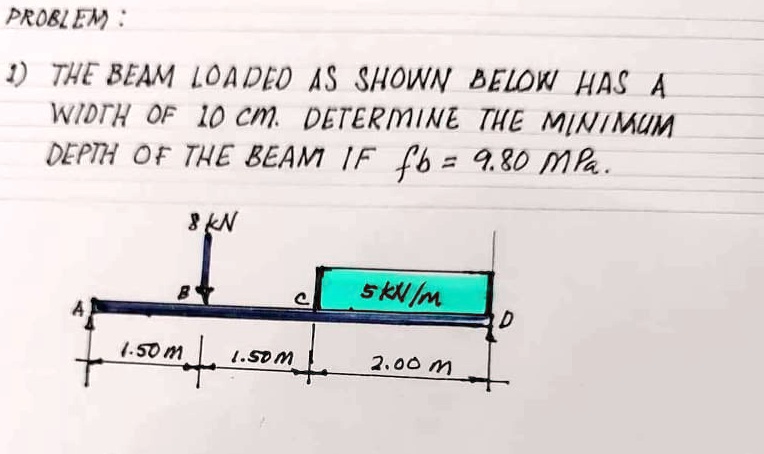 PROBLEM:
1) THE BEAM LOADED AS SHOWN BELOW HAS A
WIDTH OF 10 cm. DETERMINE THE MINIMUM
DEPTH OF THE BEAM IF fb = 9.80 MPa.
8 kN
5 kN/m
A
B
C
D
1.50 m
1.50 m
2.00 m